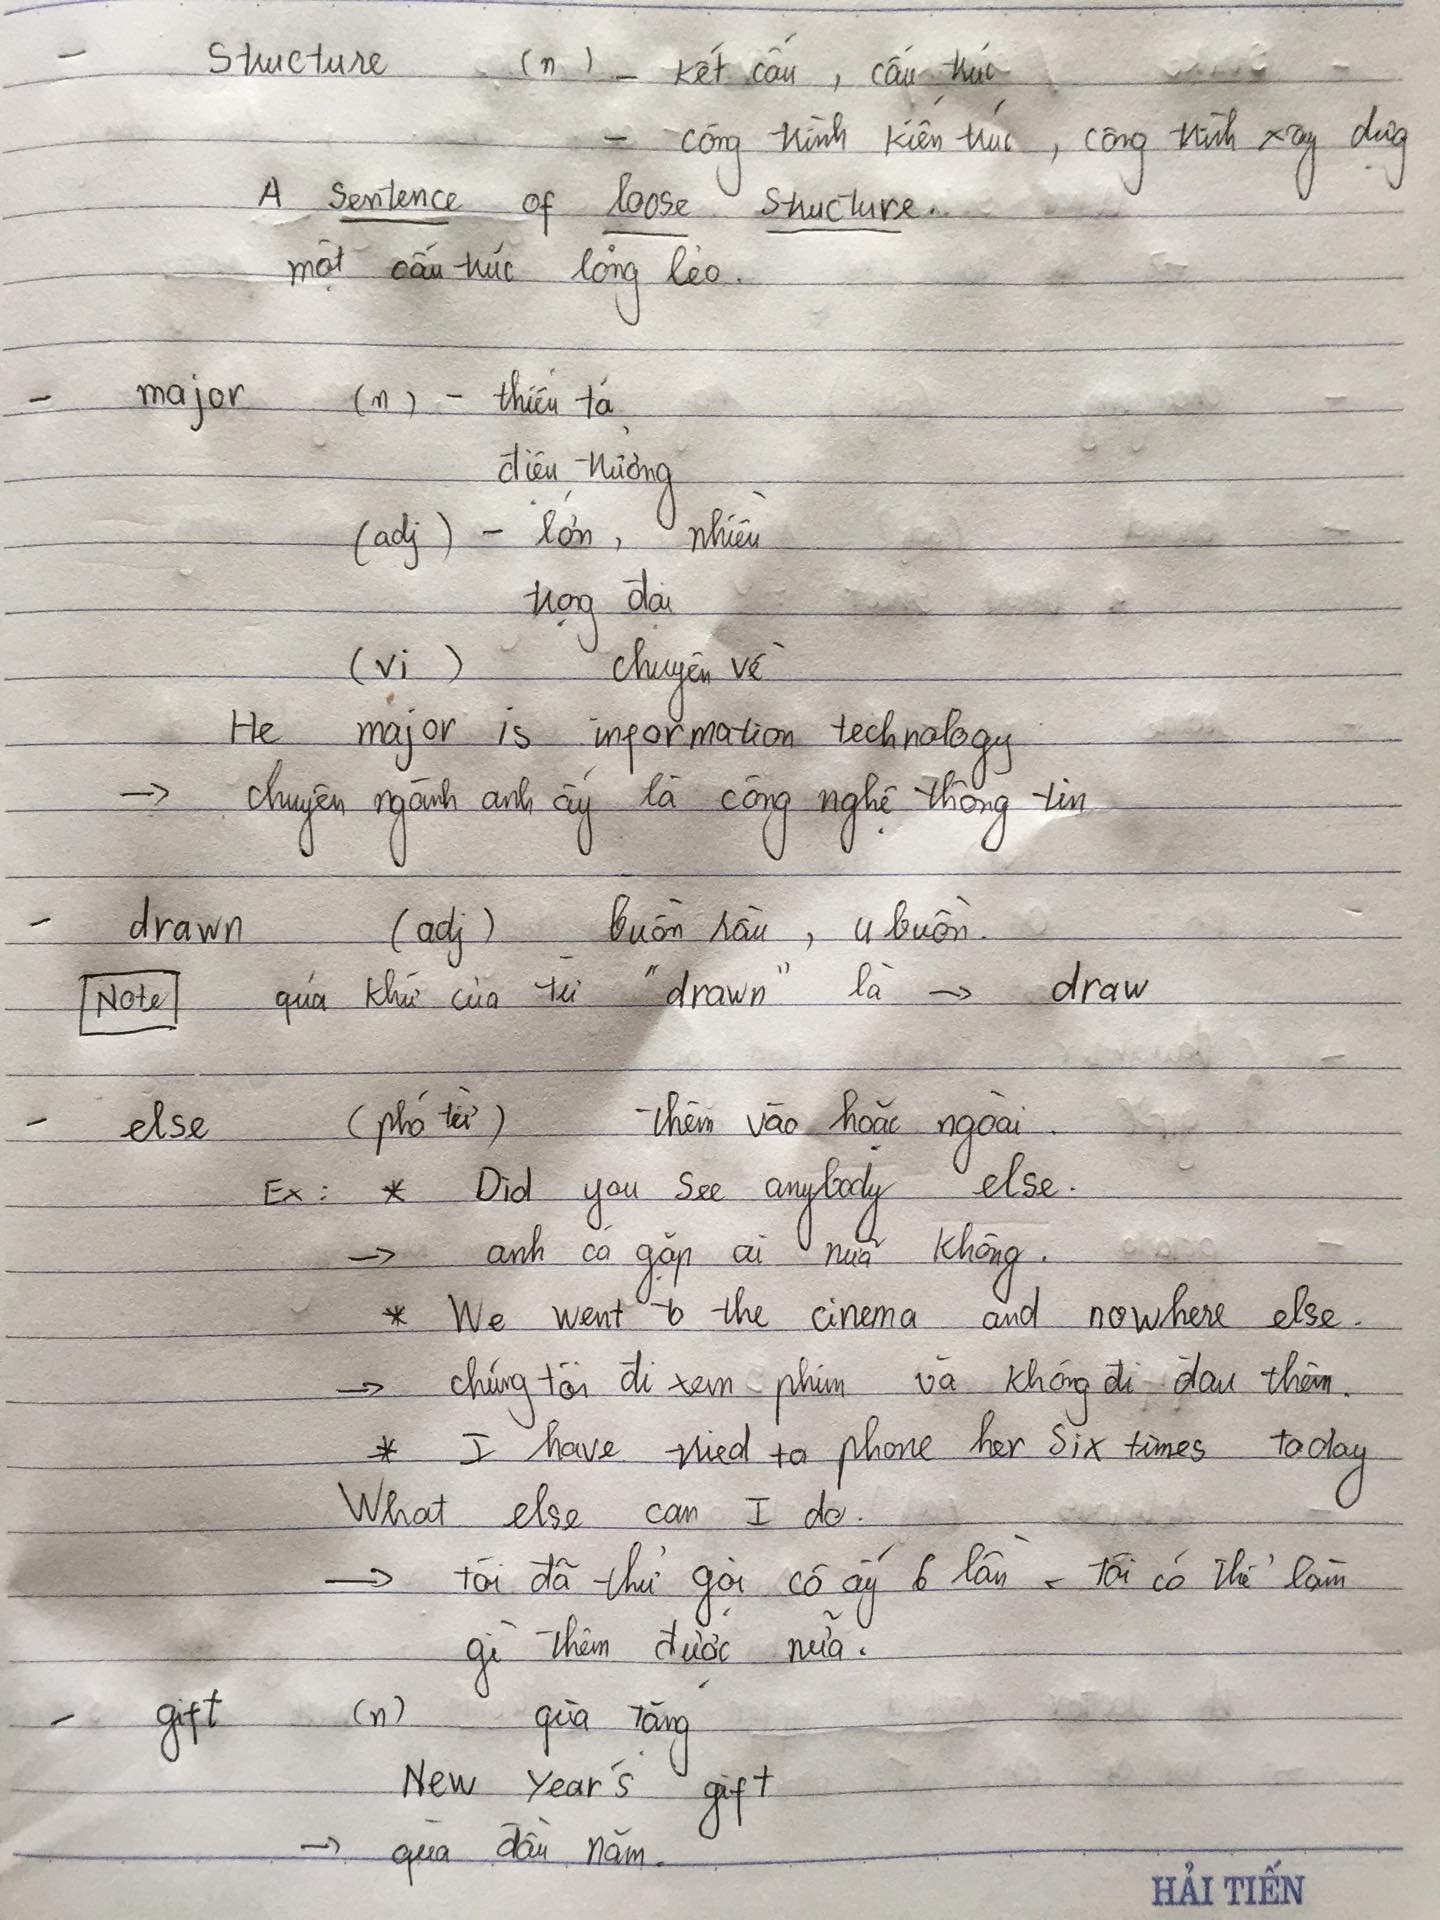 - Structure (n) - kết cấu, cấu trúc
- công trình kiến trúc, công trình xây dựng
A sentence of loose structure.
một cấu trúc lỏng lẻo.
- major (n) - thiếu tá
điệu trưởng
(adj) - lớn, nhiều
trọng đại
(vi) chuyên về
He major is information technology
→ chuyên ngành anh ấy là công nghệ thông tin
- drawn (adj) buồn rầu, u buồn.
Note quá khứ của từ "drawn" là → draw
- else (phó từ) thêm vào hoặc ngoài.
Ex: * Did you see anybody else.
→ anh có gặp ai nữa không.
* We went to the cinema and nowhere else.
→ chúng tôi đi xem phim và không đi đâu thêm.
* I have tried to phone her six times today
What else can I do.
→ tôi đã thử gọi cô ấy 6 lần - tôi có thể làm
gì thêm được nữa.
- gift (n) qùa tặng
New Year's gift
→ qùa đầu năm.
HẢI TIẾN